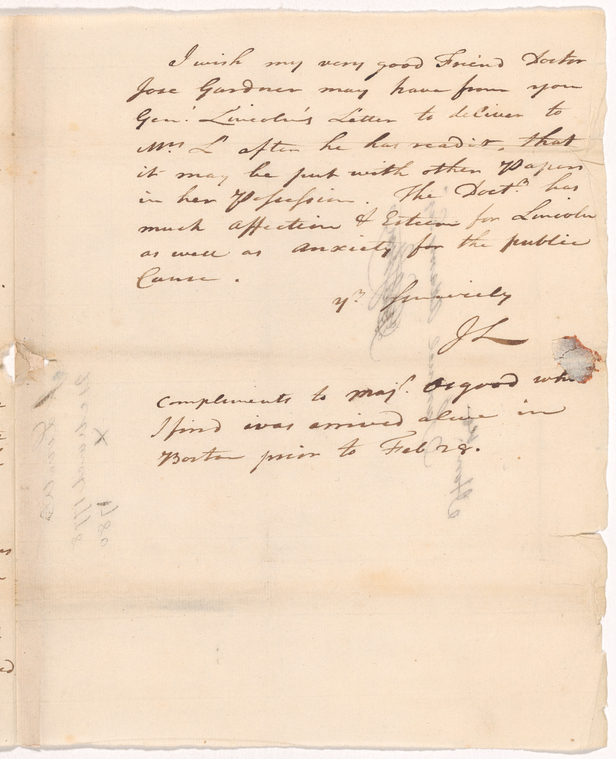 I wish my very good Friend Doctor
Jose Gardner may have from you
Genl. Lincoln's Letter to deliver to
Mrs L after he has readit, that
it may be put with other Papers
in her Possession. The Doctr. has
much affection & Esteem for Lincoln
as well as anxiety for the public
Cause.
yr. Sincerely
JL
compliments to majr. Osgood who
I find was arrived alive in
Boston prior to Feb 28.